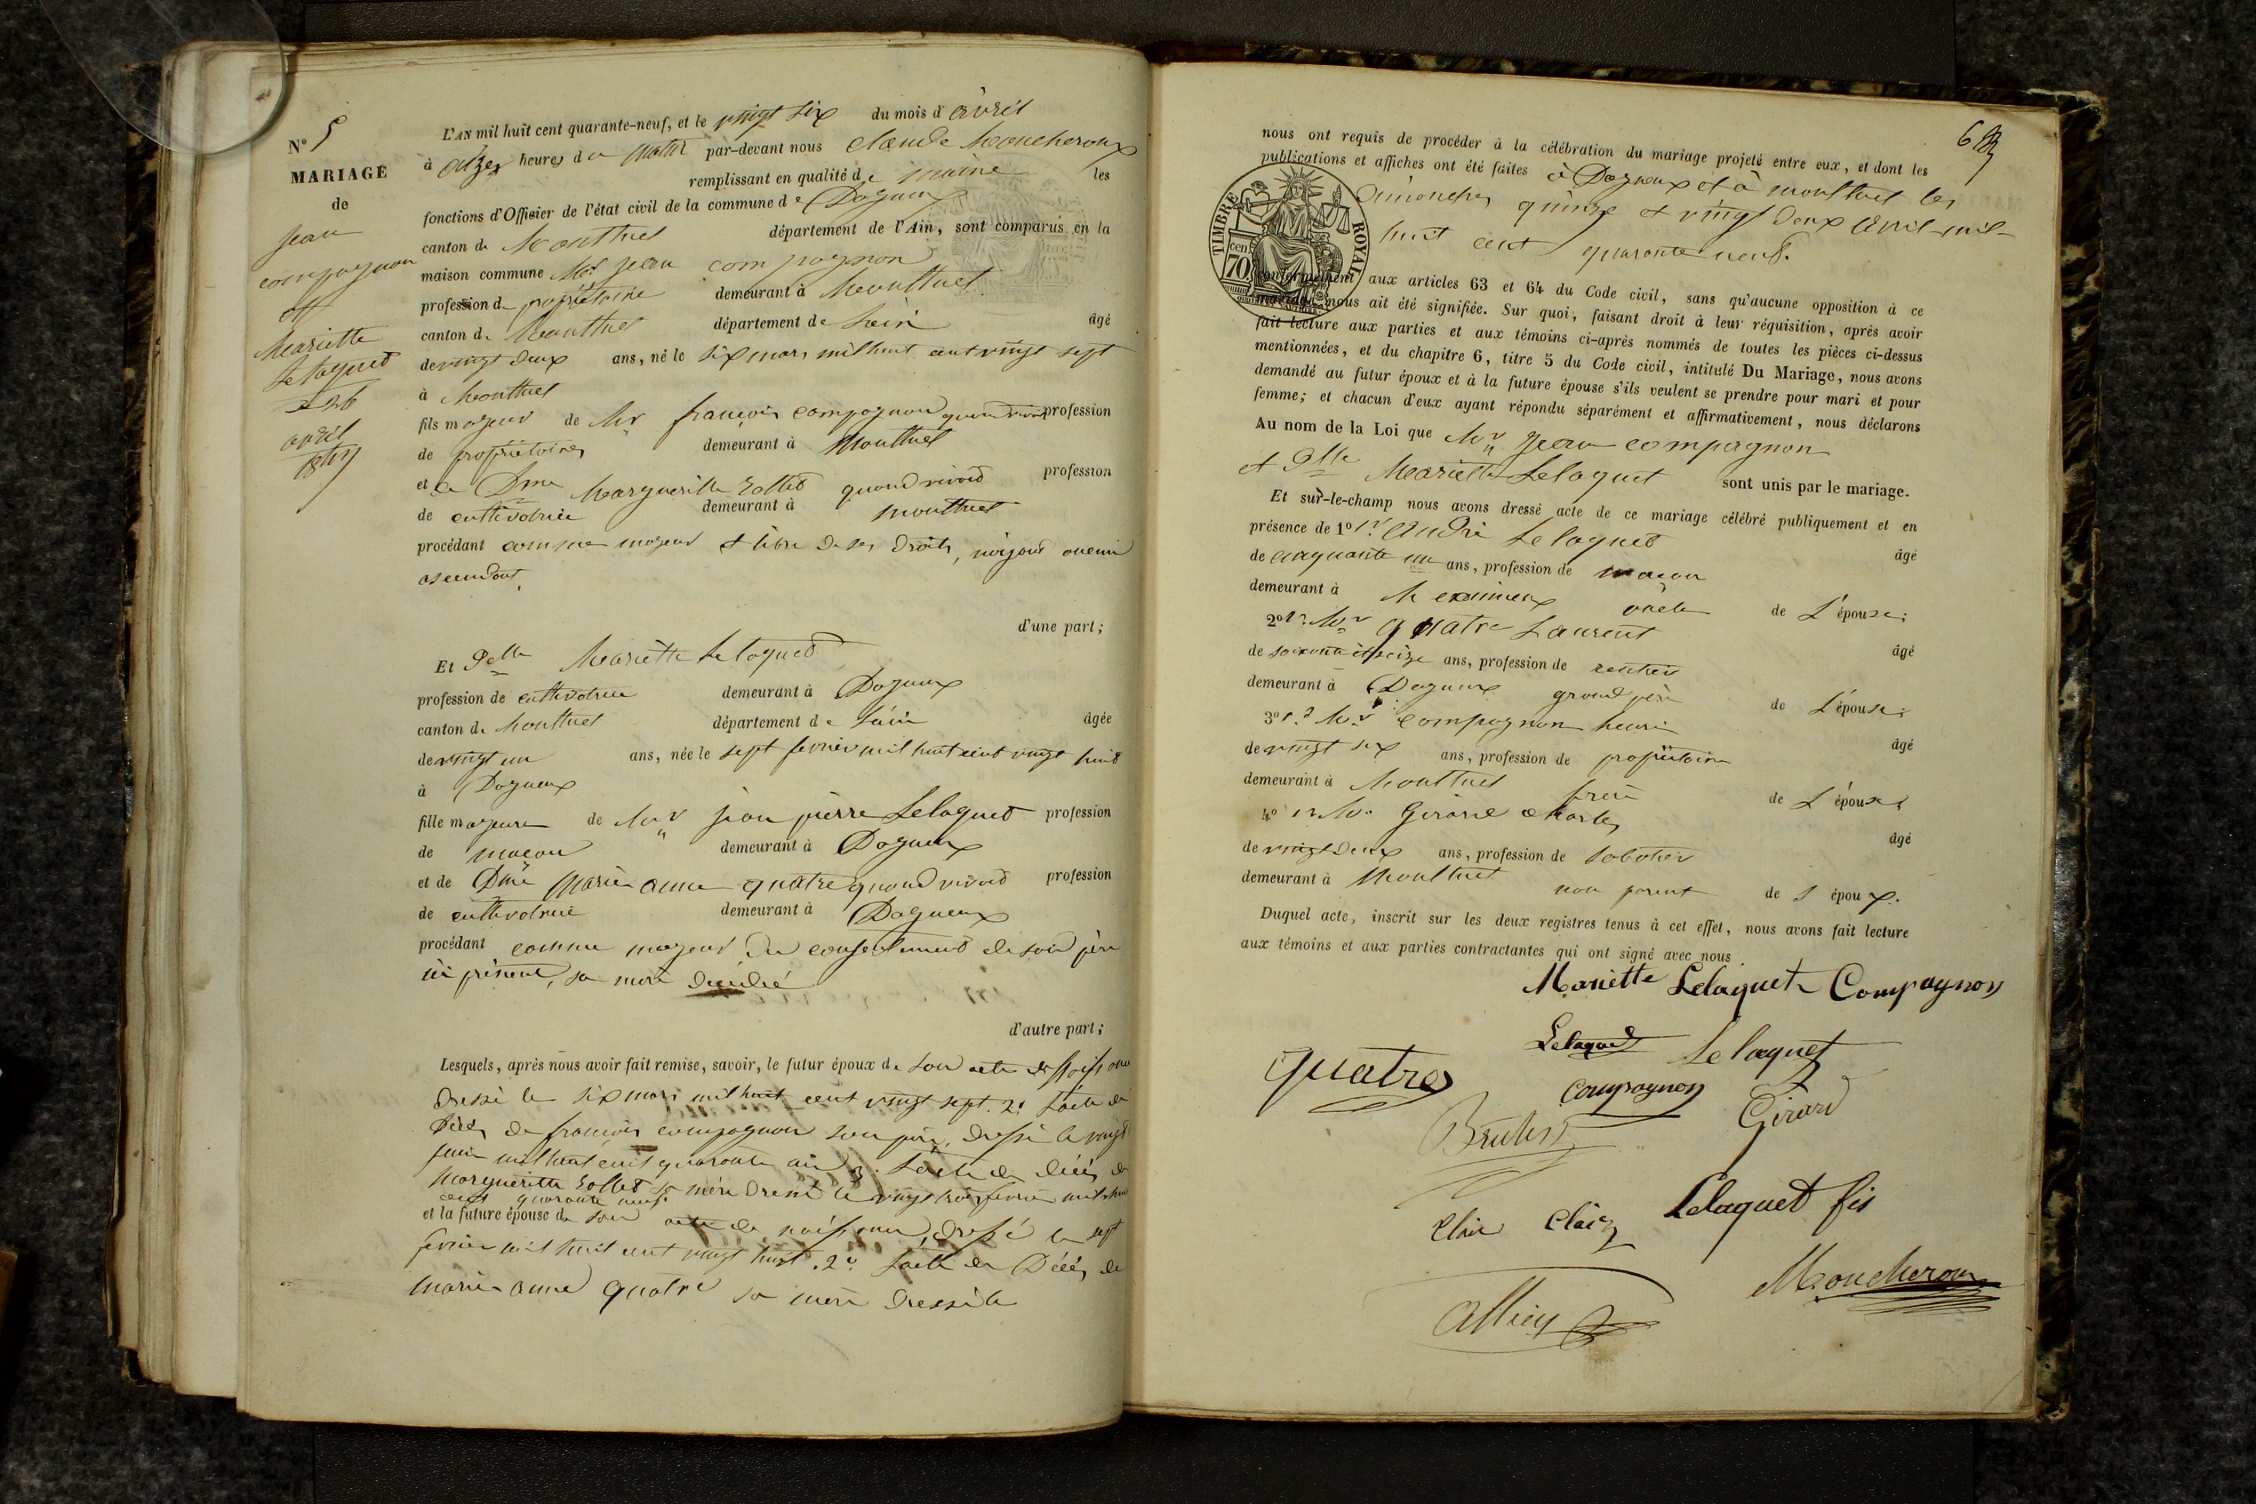 N° 5
MARIAGE
de
jean
compagnon
et
Mariette
Lelaquet
26
avril
1849
L'AN mil huit cent quarante-neuf, et le vingt six du mois d'avril
à onze heures du matin par-devant nous claude Moucheroux
remplissant en qualité de maire les
fonctions d'Officier de l'état civil de la commune de Dagneux
canton de Montluel département de l'Ain, sont comparus en la
maison commune Mr jean compagnon
profession de propriétaire demeurant à Montluel
canton de Montluel département de Lain âgé
de vingt deux ans, né le six mars mil huit cent vingt sept
à Montluel
fils majeur de Mr françois compagnon quand vivait profession
de propriétaire demeurant à Montluel
et de Dme Margueritte Rollet quand vivait profession
de cultivatrice demeurant à montluel
procédant comme majeur et libre de ses droits, n'ayant aucun
ascendant,
d'une part;
Et Delle Mariette Lelaquet
profession de cultivatrice demeurant à Dagneux
canton de Montluel département de Lain âgée
de vingt un ans, née le sept fevrier mil huit cent vingt huit
à Dagneux
fille majeure de Mr jean pierre Lelaquet profession
de maçon demeurant à Dagneux
et de Dme Marie anne quatre quand vivait profession
de cultivatrice demeurant à Dagneux
procédant comme majeur du consentement de son père
ici présent, sa mère décédée
d'autre part;
Lesquels, après nous avoir fait remise, savoir, le futur époux de son acte de
dressé le six mars mil huit cent vingt sept. 2° Lacte de
décès de françois compagnon son père, dressé le vingt
juin mil huit cent quarante 3° Lacte de décès de
Margueritte Rollet sa mère dressé le vingt trois fevrier mil huit
cent quarante neuf.
et la future épouse de son acte de naissance, dressé le sept
fevrier mil huit cent vingt huit. 2° Lacte de Décès de
marie anne quatre sa mère dressé le
nous ont requis de procéder à la célébration du mariage projeté entre eux, et dont les
publications et affiches ont été faites à Dagneux et à montluel les
dimanches quinze et vingt deux avril mil
huit cent quarante neuf.
TIMBRE ROYAL
70 cen
conformément aux articles 63 et 64 du Code civil, sans qu'aucune opposition à ce
mariage nous ait été signifiée. Sur quoi, faisant droit à leur réquisition, après avoir
fait lecture aux parties et aux témoins ci-après nommés de toutes les pièces ci-dessus
mentionnées, et du chapitre 6, titre 5 du Code civil, intitulé Du Mariage, nous avons
demandé au futur époux et à la future épouse s'ils veulent se prendre pour mari et pour
femme; et chacun d'eux ayant répondu séparément et affirmativement, nous déclarons
Au nom de la Loi que Mr Jean compagnon
et Dlle Mariette Lelaquet sont unis par le mariage.
Et sur-le-champ nous avons dressé acte de ce mariage célébré publiquement et en
présence de 1° andré Lelaquet âgé
de cinquante un ans, profession de maçon
demeurant à Meximieux oncle de L'épouse;
2° Mr quatre Laurent âgé
de soixante et seize ans, profession de rentier
demeurant à Dagneux grand père de L'épouse;
3° Mr compagnon henri âgé
de vingt six ans, profession de propriétaire
demeurant à Montluel frère de L'époux;
4° Mr Girard charles âgé
de vingt deux ans, profession de sabotier
demeurant à Montluel non parent de l époux.
Duquel acte, inscrit sur les deux registres tenus à cet effet, nous avons fait lecture
aux témoins et aux parties contractantes qui ont signé avec nous
Mariette Lelaquet Compagnon
Lelaquet Lelaquet
quatre compagnon Girard
Claire Lelaquet fis
Moucheroux